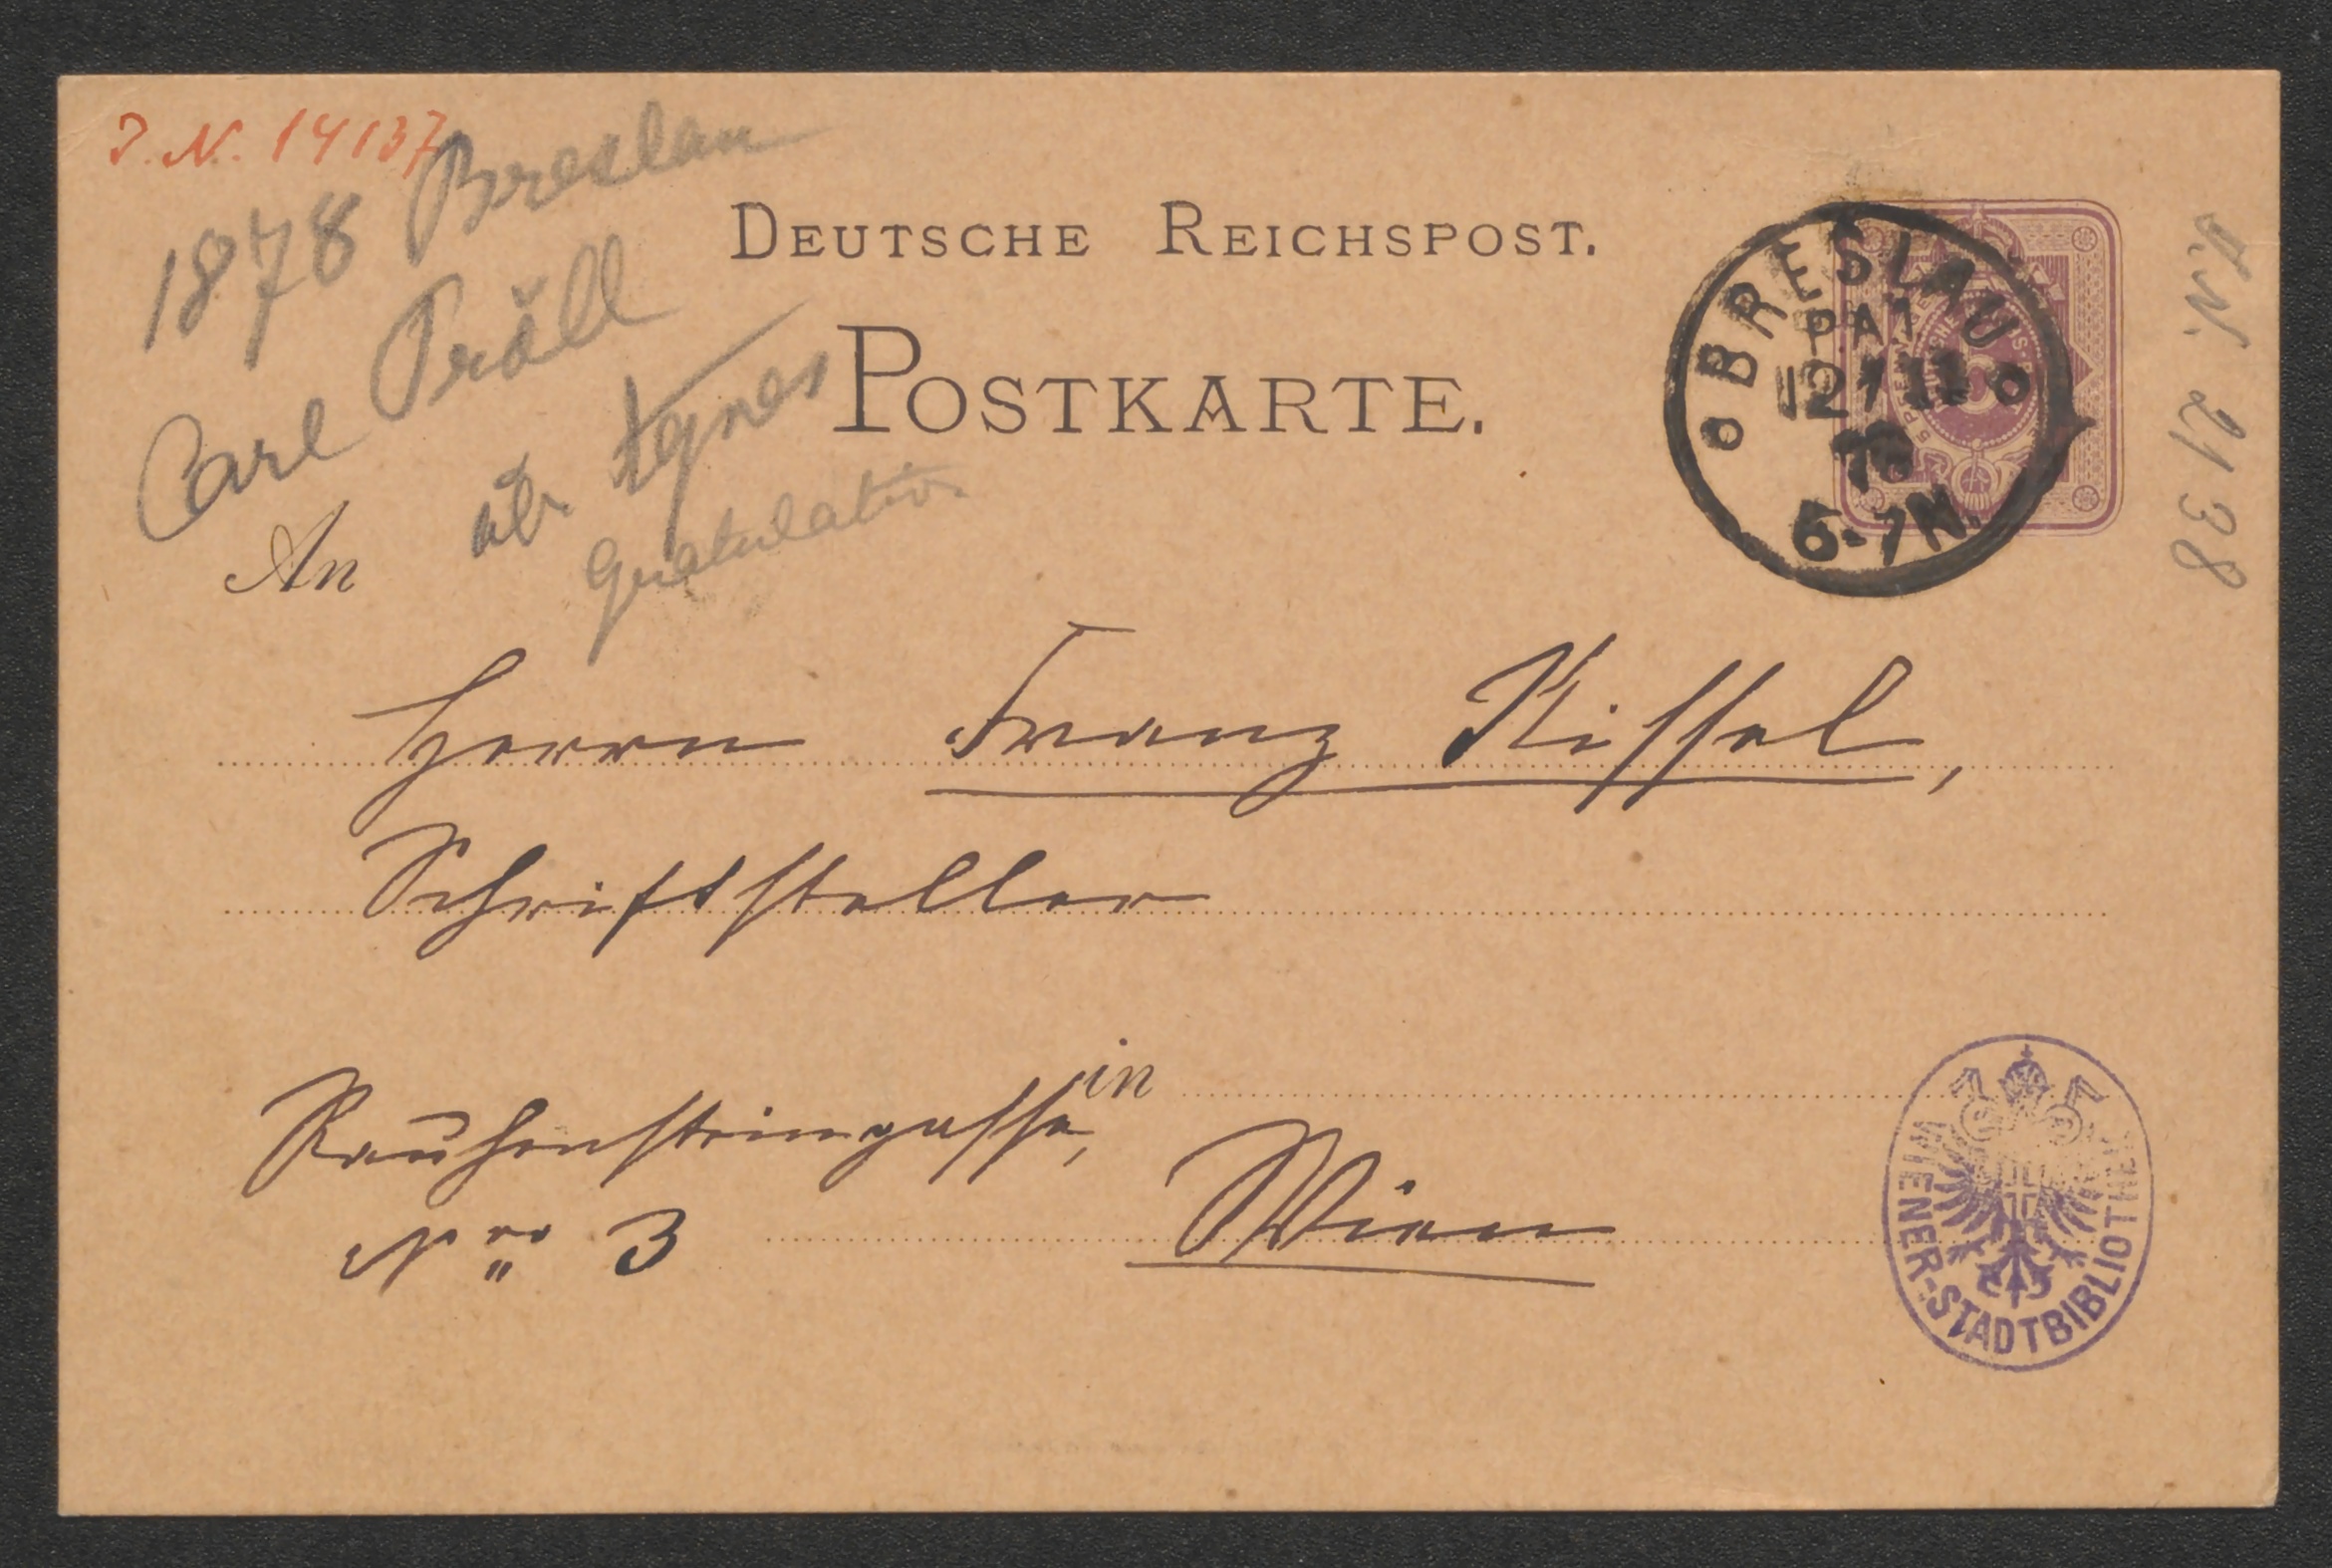 J.N. 14137
1878 Breslau
Carl Pröll
üb. Agnes
Gratulation
DEUTSCHE REICHSPOST.
POSTKARTE.
BRESLAU
P.A.1
12/11
78
6-7N.
J.N. 2138
An
Herrn Franz Nissel,
Schriftsteller
in
Rauhensteingasse,
Nro 3
Wien
WIENER-STADTBIBLIOTHEK